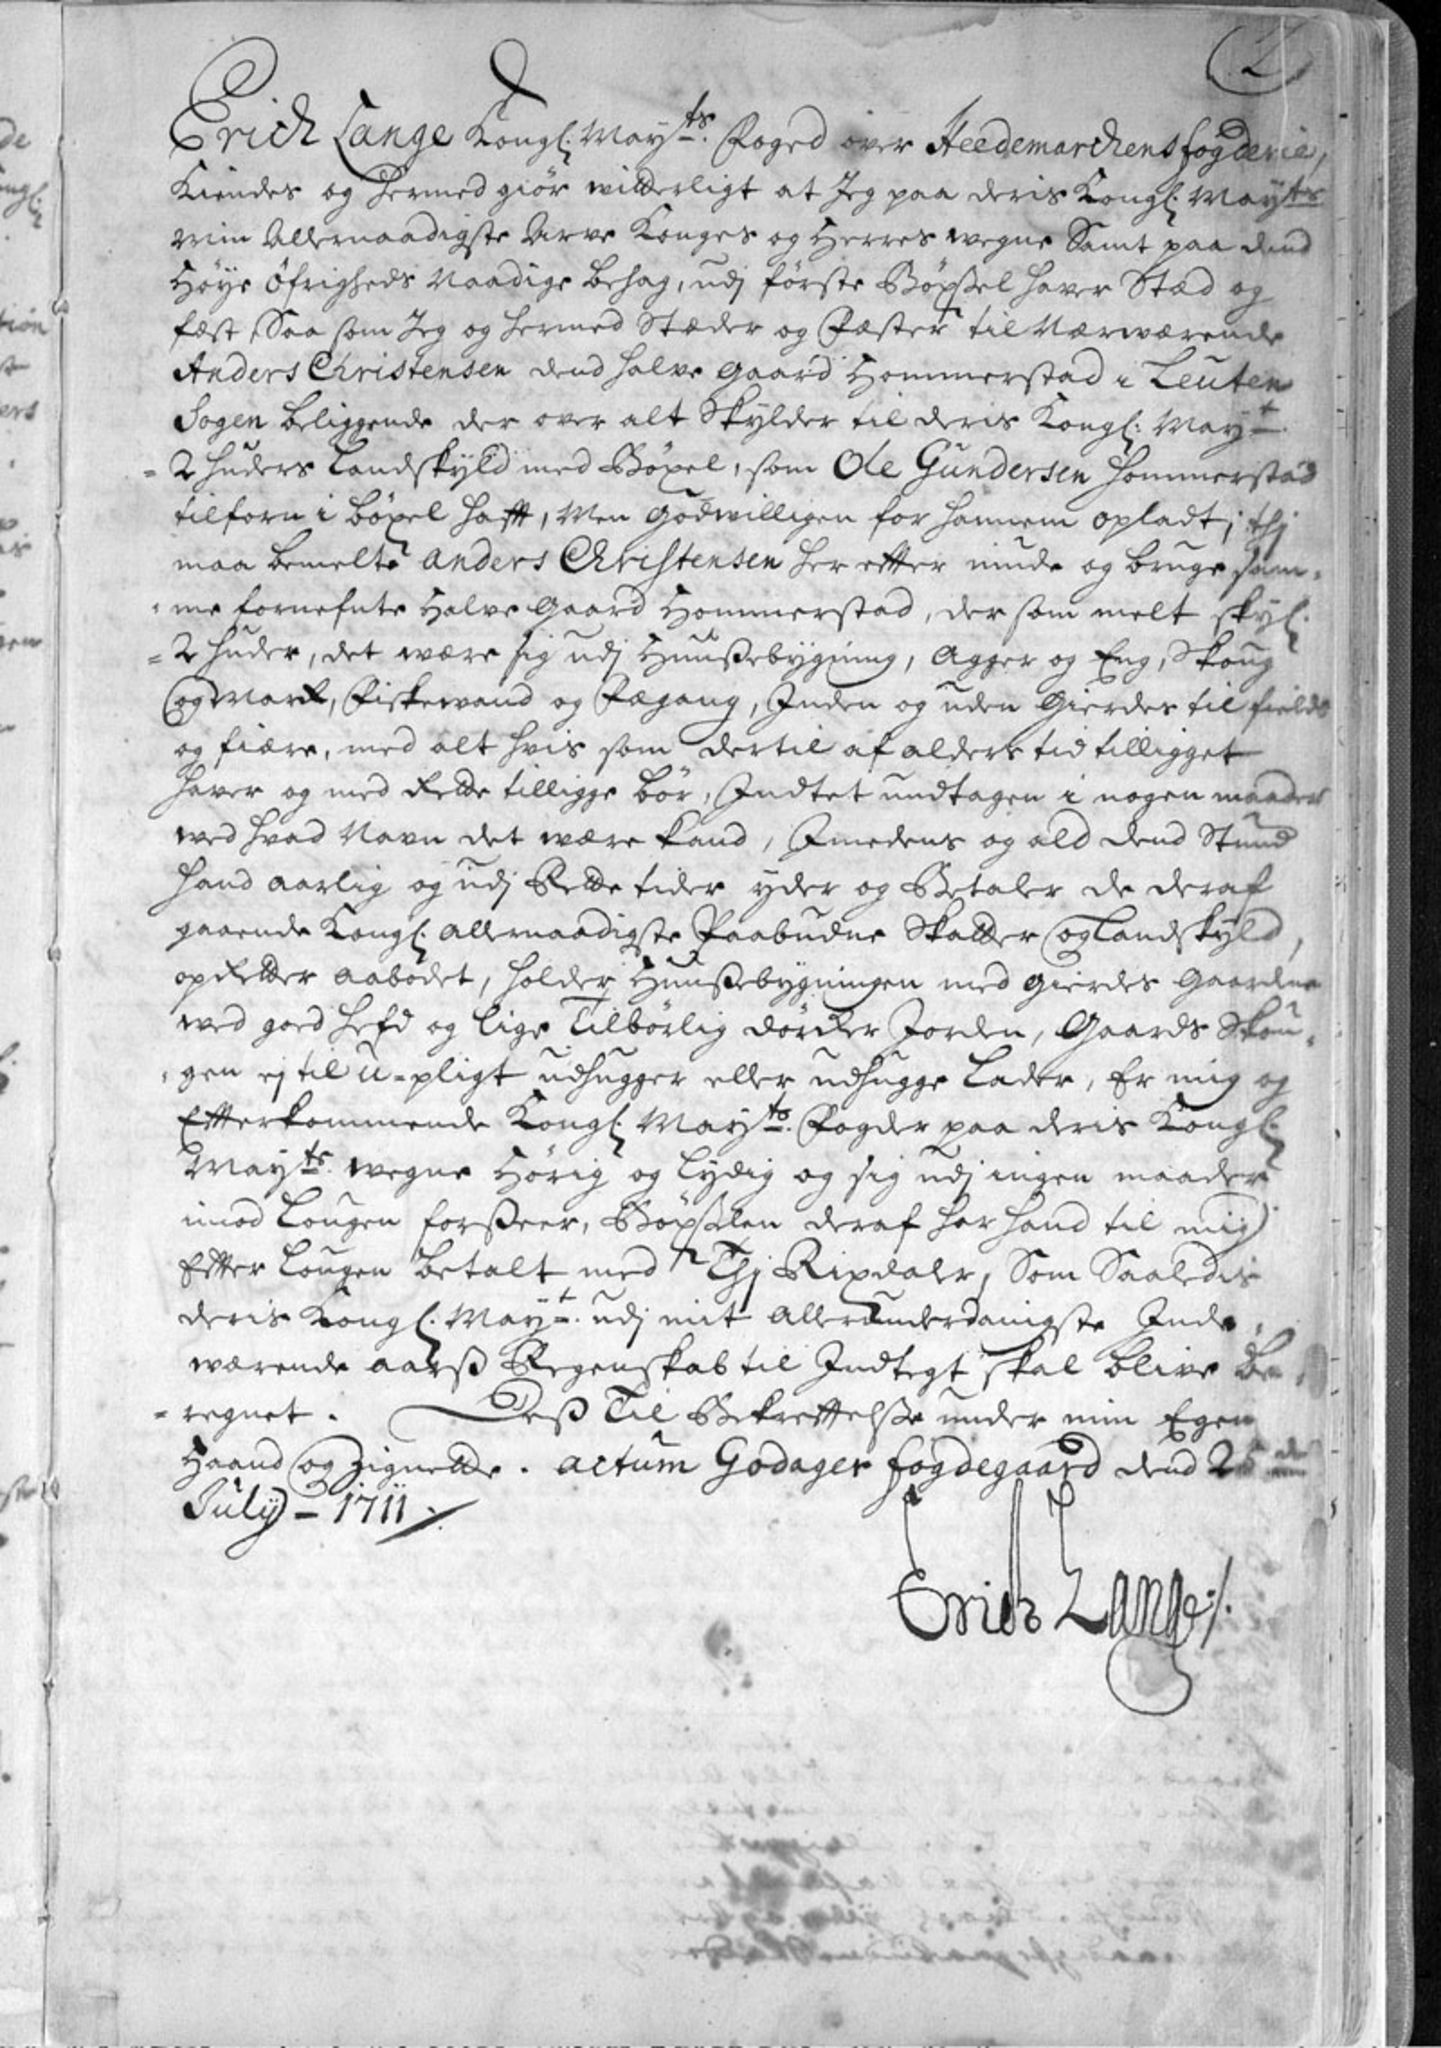 1
Erich Lange Kongl: Mayts. Foged over Heedemarchens fogderie,
Kiendes og hermed giør witterligt at Jeg paa deris Kongl: Mayts
min Allernaadigste Arve Konges og Herres wegne Samt paa dend
Høye Öfrigheds Naadige behag, udj förste Böxsel haver Stæd og
fæst, Saa som Jeg og hermed Stæder og Fæster til Nærwærende
Anders Christensen dend halve gaard Hommerstad i Leuten
Sogen beliggende der over alt Skylder til deris Kongl: Mayt.
= 2 huders Landskyld med Böxel, som Ole Gundersen Hommerstad
tilforn i böxel hafft, Men godwilligen for hannem opladt; thj
maa bemelte Anders Christensen her effter niude og bruge sam=
=me fornefnte Halve Gaard Hommerstad, der som melt skyl:
= 2 huder, det wære sig udj Huußebygning, Agger og Eng, Skoug
og Mark, Fiskewand og Fægang, Inden og uden Gierdes til fields
og fiære, med alt hvis som dertil af alders tid tilligget
haver og med Rette tilligge bör, Indtet undtagen i nogen maader
wed hvad Navn det være kand, Imedens og ald dend Stund
hand aarlig og udj Rette tider yder og Betaler de deraf
gaaende Kongl: allernaadigste Paabudne Skatter og Landskyld,
opretter aabodet, holder Huußebygningen med gierdes gaardene
wed goed hefd og lige Tilbörlig dörcker Jorden, Gaards Skou=
=gen ej til u=pligt udhugger eller udhugge Lader, Er mig og
Effterkommende Kongl: Mayts. Fogder paa deris Kongl:
Mayts. wegne Hörig og Lydig og sig udj ingen maader
imod Lougen forßeer, Böxßelen deraf har hand til mig
Effter Lougen betalt med Thj Rixdaler, Som Saaledis
deris Kongl: Mayt. udj mit allerunderdanigste Inde=
wærende aarß Regenskab til Indtegt skal blive be=
=regnet. Deß Til Bekrefftelße under min Egen
Haand og Zignette. actum Godager fogdegaard dend 25de
July = 1711.
Erich Lange ./.